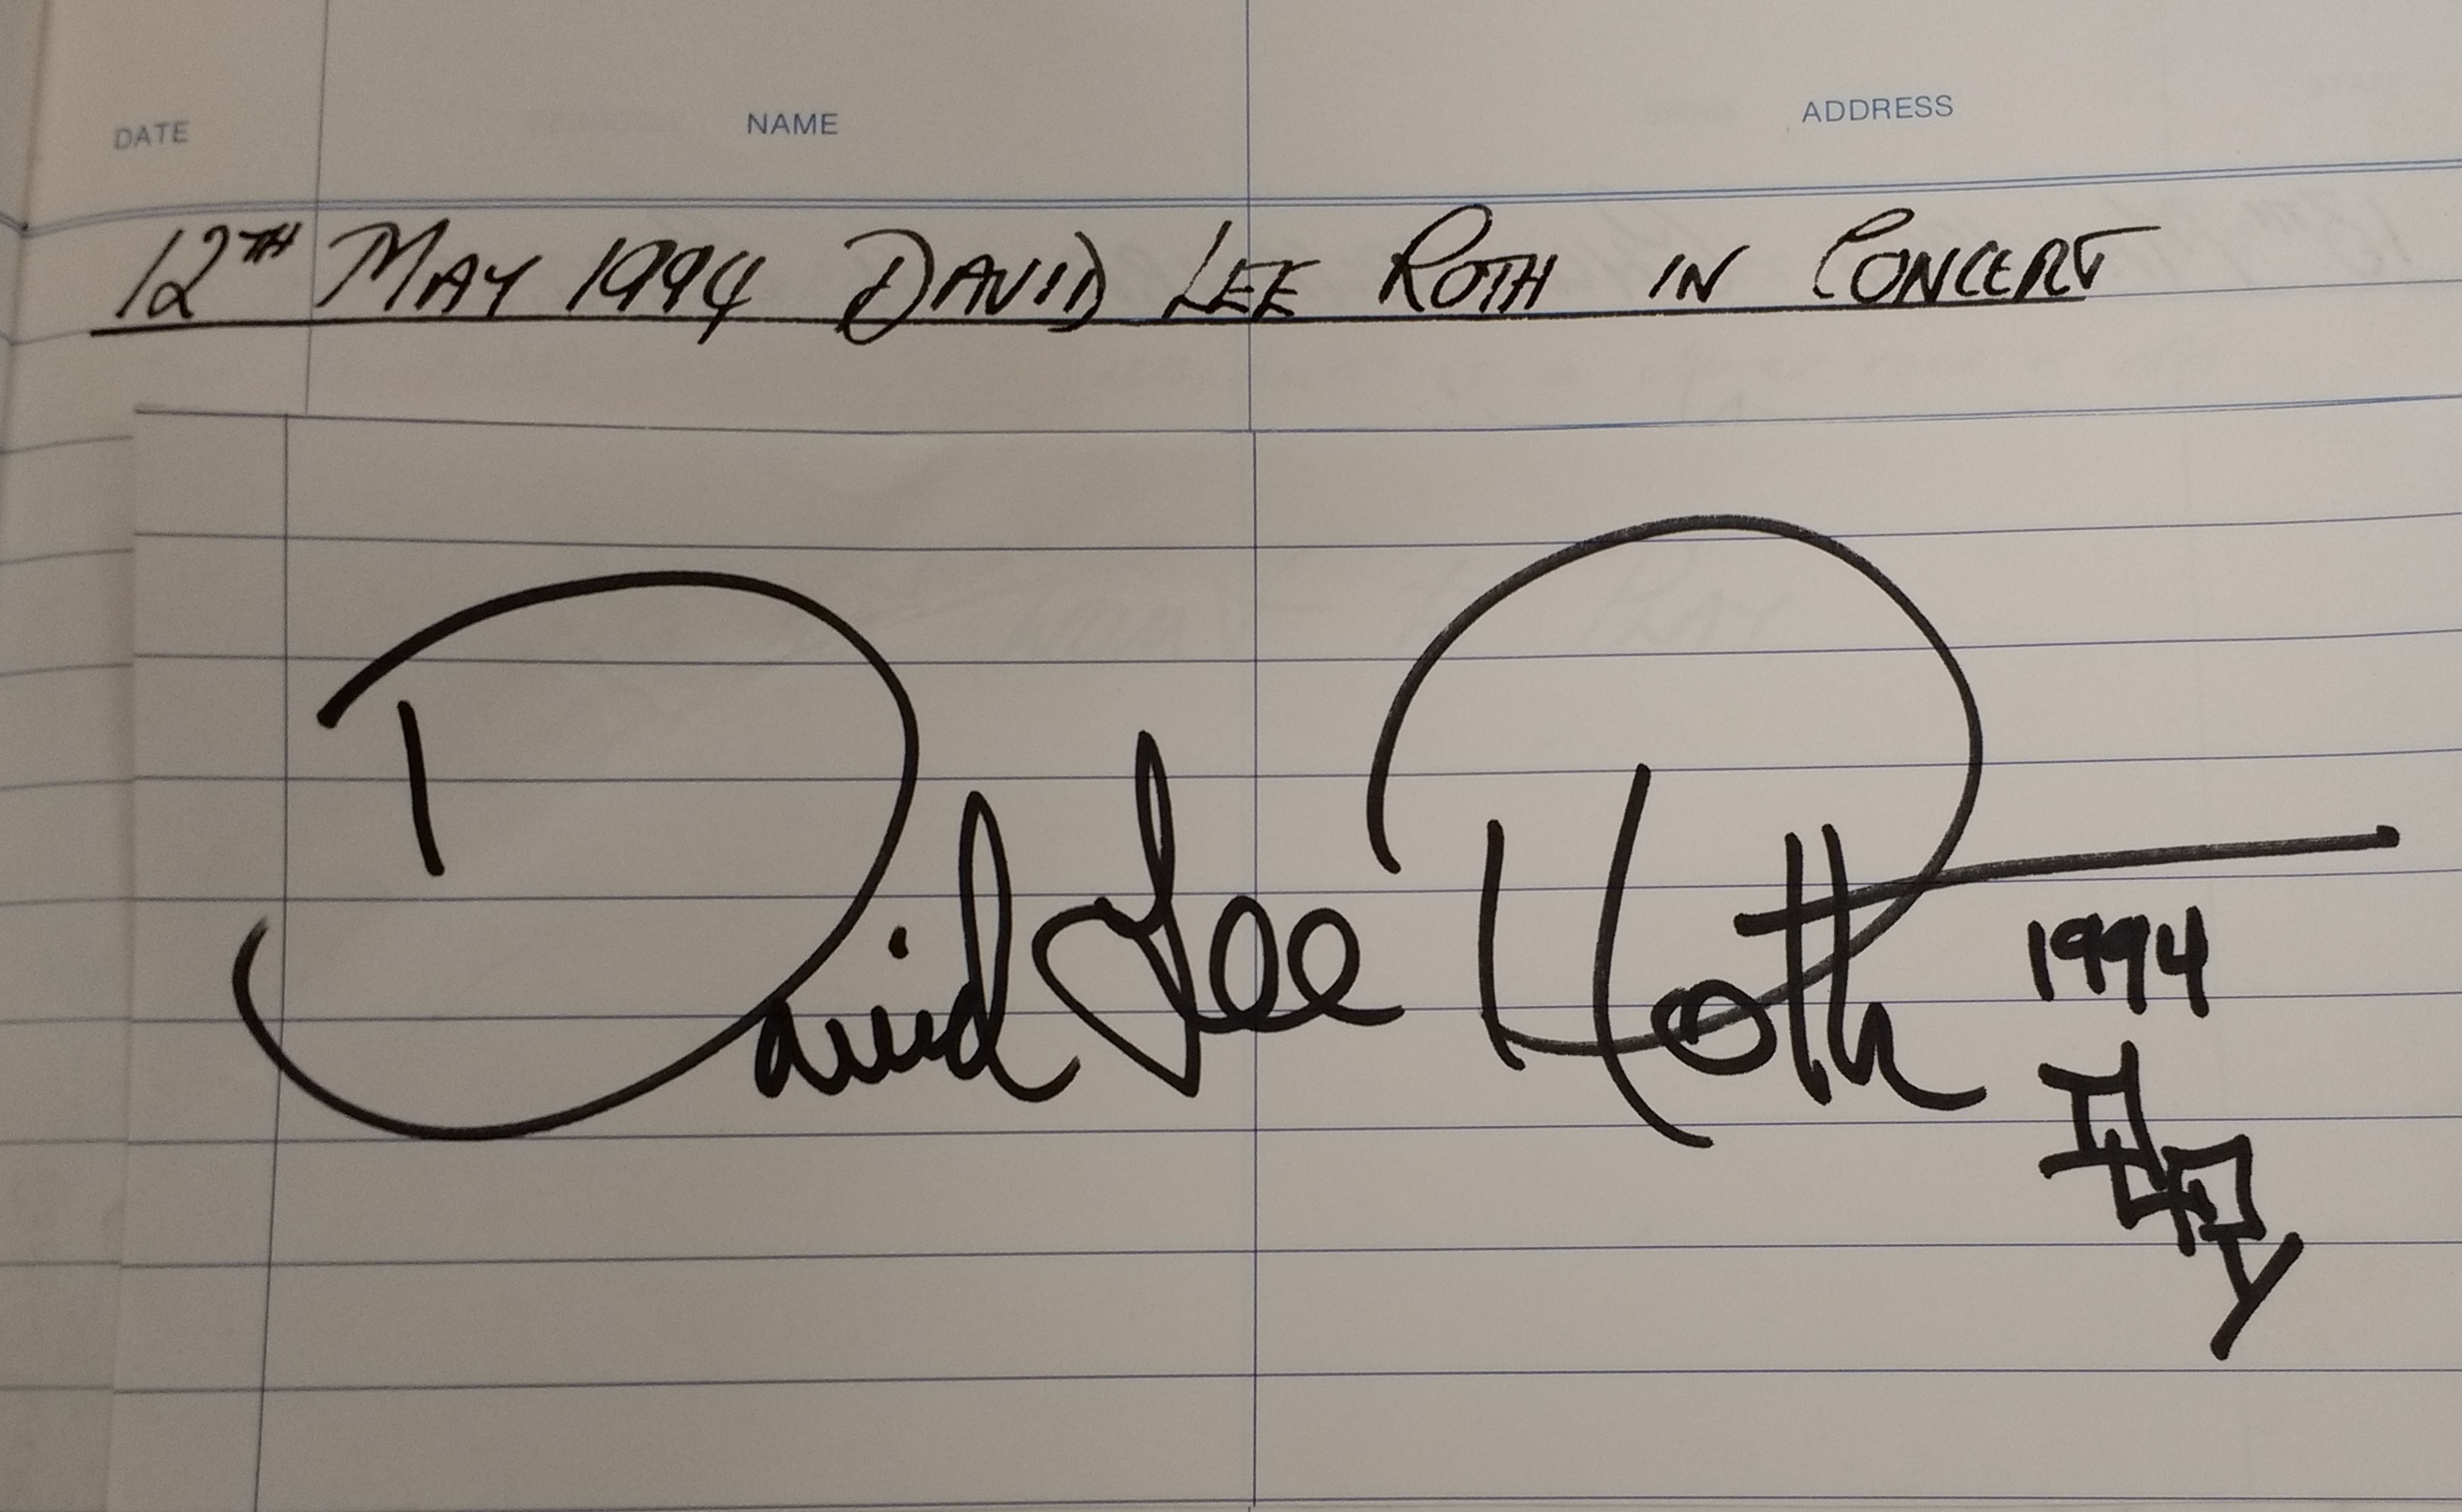 DATE NAME ADDRESS
12TH MAY 1994 DAVID LEE ROTH IN CONCERT
David Lee Roth
1994